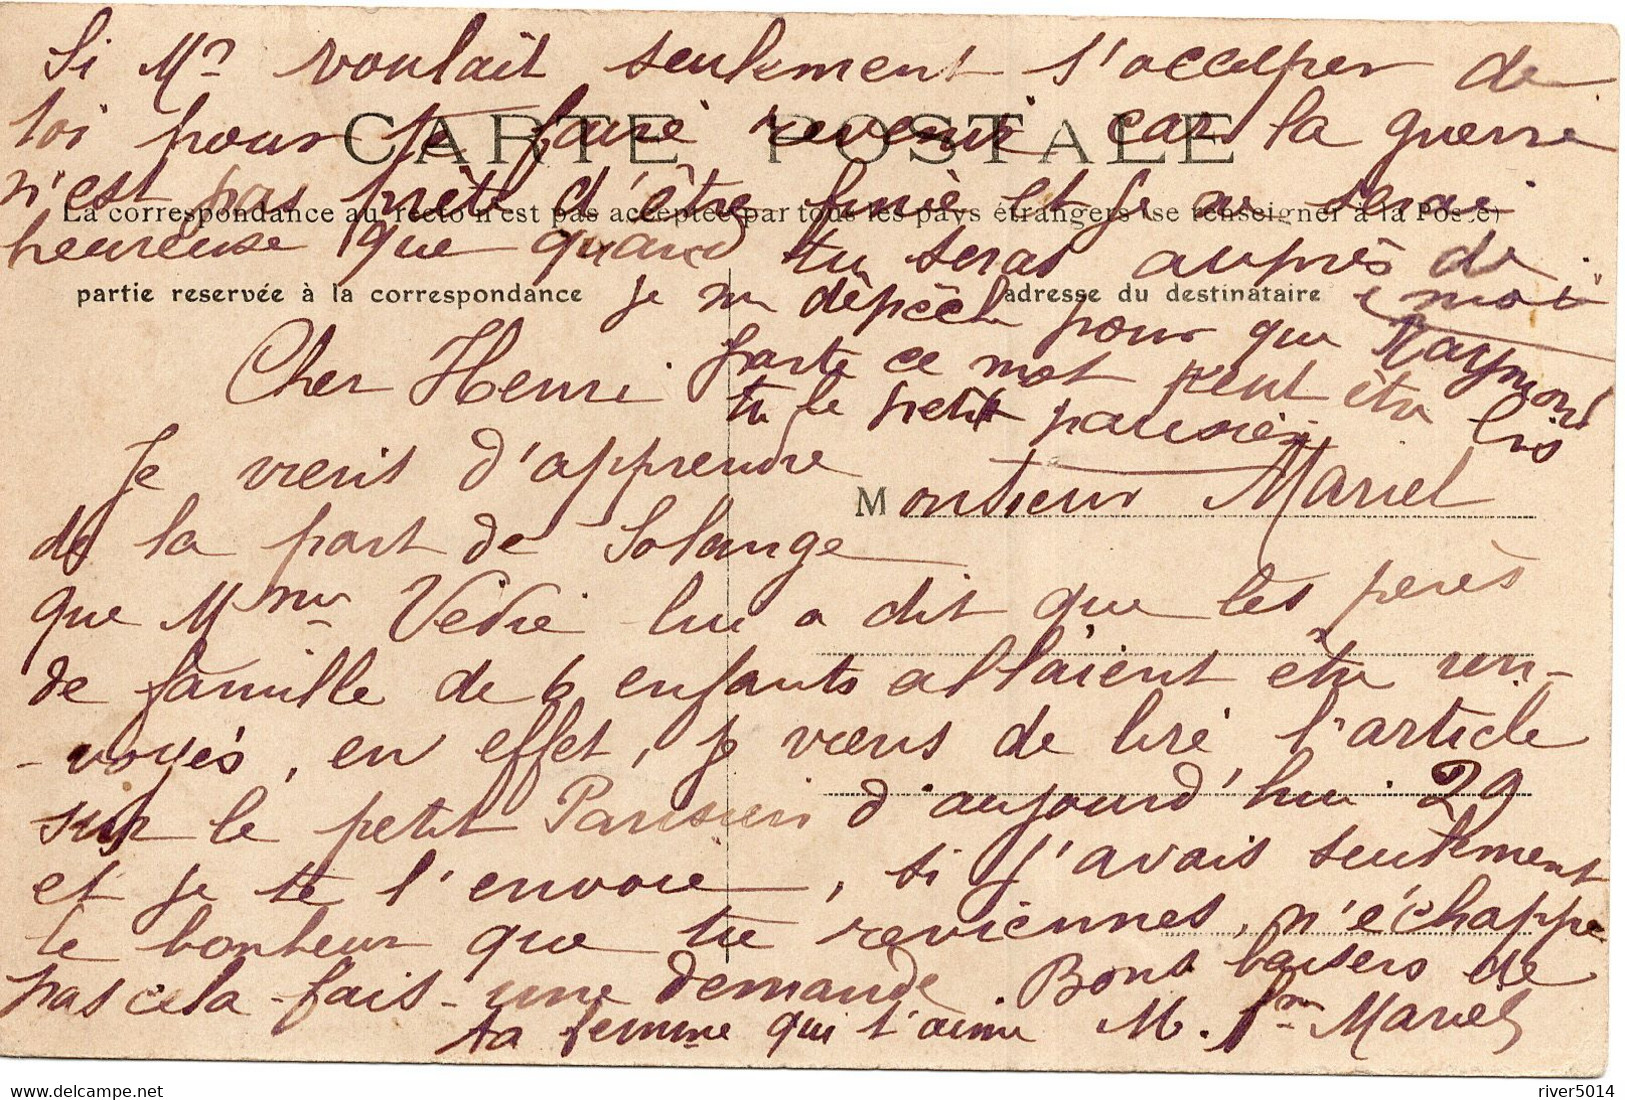 Si Mr voulait seulement s'occuper de
toi pour te faire revenir car la guerre
CARTE POSTALE
n'est pas prète d'être finie et je ne serai
La correspondance au recto n'est pas acceptée par tous les pays étrangers (se renseigner à la Poste)
heureuse que quand tu seras auprès de
moi
partie reservée à la correspondance
adresse du destinataire
je me dépèche pour que Raymond
porte ce mot peut être lis
tu le petit parisien
Cher Henri
Je vient d'apprendre
Monsieur Mariel
de la part de Solange
que Mme Védie lui a dit que les perès
de famille de 6 enfants allaient être ren-
-voyés, en effet, je viens de lire l'article
sur le petit Parisien d'aujourd'hui 29
et je te l'envoie, si j'avais seulement
le bonheur que tu reviennes, n'échappe
pas cela fais une demande. Bons baisers de
ta femme qui t'aime M. Mariel
river5014